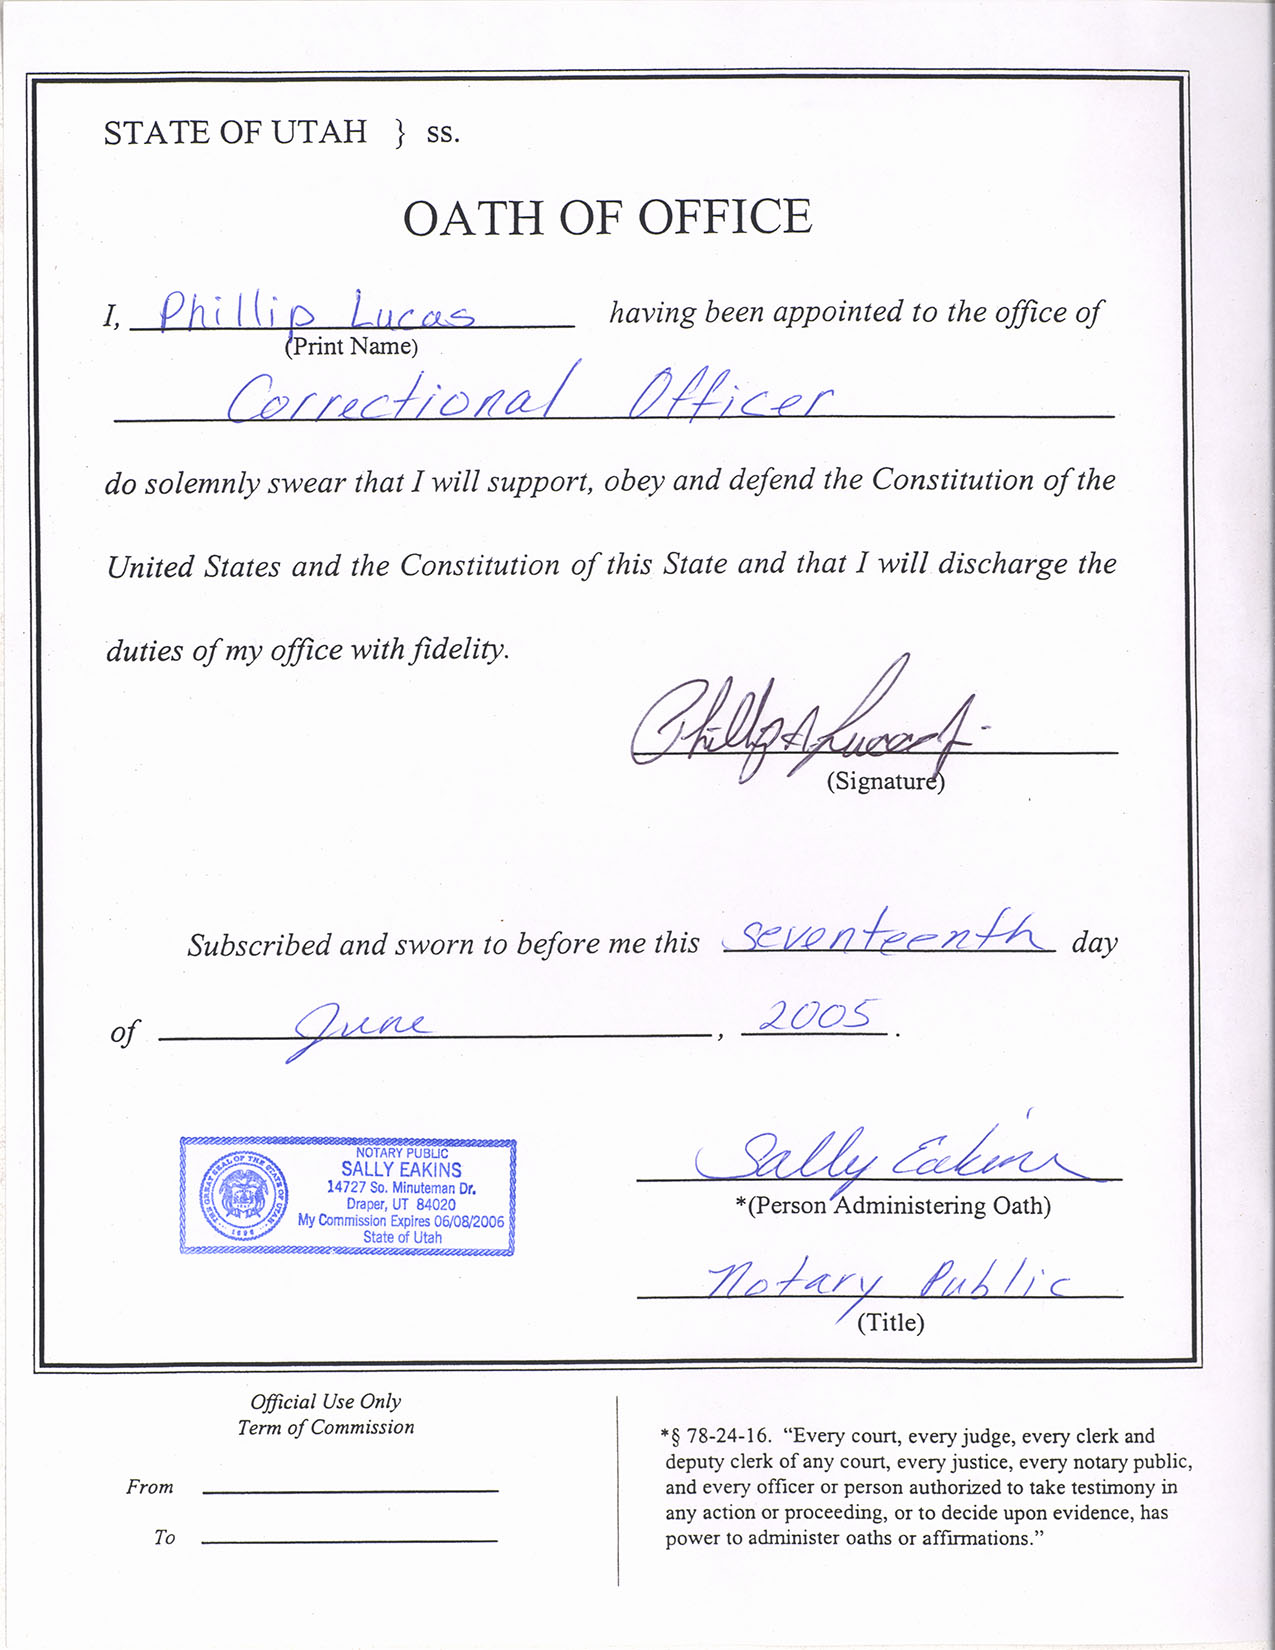 STATE OF UTAH } ss.
OATH OF OFFICE
I, Phillip Lucas having been appointed to the office of
(Print Name)
Correctional Officer
do solemnly swear that I will support, obey and defend the Constitution of the
United States and the Constitution of this State and that I will discharge the
duties of my office with fidelity.
Phillip A Lucas Jr.
(Signature)
Subscribed and sworn to before me this seventeenth day
of June, 2005.
NOTARY PUBLIC
SALLY EAKINS
14727 So. Minuteman Dr.
Draper, UT 84020
My Commission Expires 06/08/2006
State of Utah
THE GREAT SEAL OF THE STATE OF UTAH
1896
Sally Eakins
*(Person Administering Oath)
Notary Public
(Title)
Official Use Only
Term of Commission
From
To
*§ 78-24-16. “Every court, every judge, every clerk and
deputy clerk of any court, every justice, every notary public,
and every officer or person authorized to take testimony in
any action or proceeding, or to decide upon evidence, has
power to administer oaths or affirmations.”